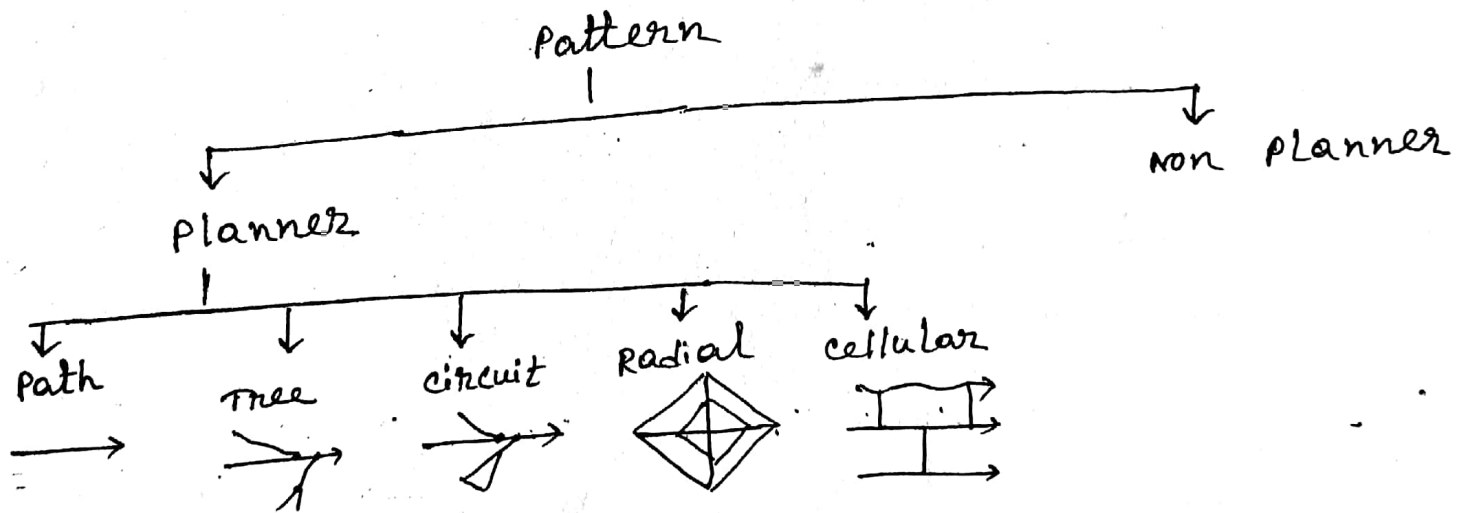 Pattern
Planner
Non Planner
Path
Tree
Circuit
Radial
Cellular